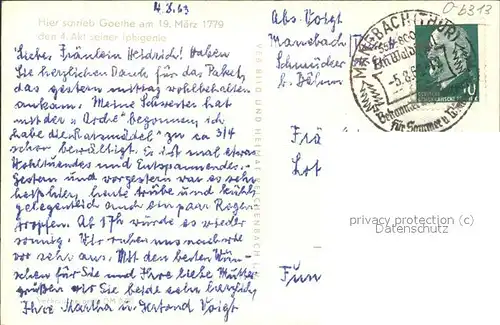 4.8.63
Hier schrieb Goethe am 19. März 1779
den 4. Akt seiner Iphigenie
Liebes Fräulein Heidrich! Haben
Sie herzlichen Dank für das Paket,
das gestern mittag wohlbehalten
ankam. Meine Schwester hat
mit der "Arche" begonnen, ich
habe die "Ratsmädel" zu ca 3/4
schon bewältigt. Es ist mal etwas
Wohltuendes und Entspannendes.
Gestern und vorgestern war es sehr
heiß hier, heute trübe und kühl,
gelegentlich auch ein paar Regen-
tropfen. Ab 17h wurde es wieder
sonnig. Wir ruhen uns nach wie
vor sehr aus. Mit den besten Wün-
schen für Sie und Ihre liebe Mutter
grüßen wir Sie beide sehr herzlich,
Ihre Martha u. Voigt
VEB BILD UND HEIMAT REICHENBACH
Abs. Voigt
Manebach
Schmücker
b. Böhm
0-6313
MANEBACH (THÜR)
-5.8.
für Sommer u.
10
Frä
Lot
privacy protection (c)
Akpool.de
Fun